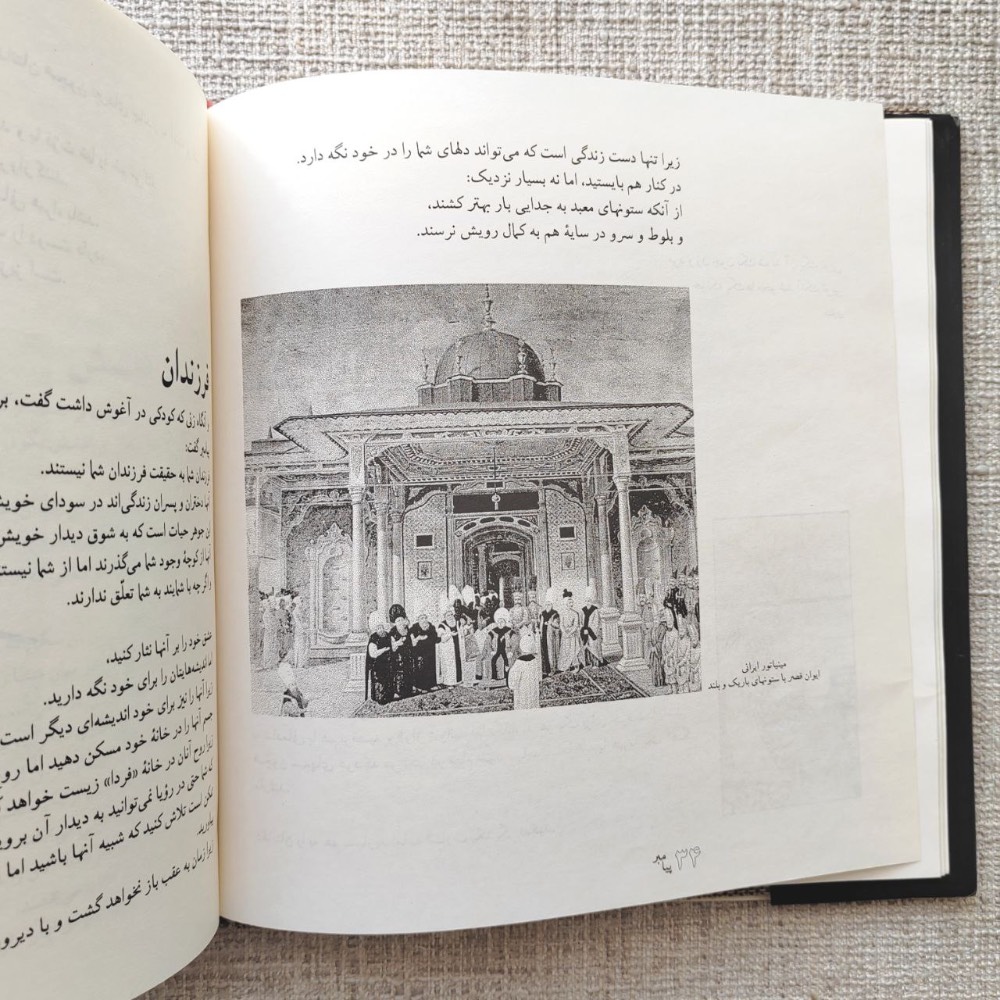 زیرا تنها دست زندگی است که می‌تواند دلهای شما را در خود نگه دارد.
در کنار هم بایستید، اما نه بسیار نزدیک:
از آنکه ستونهای معبد به جدایی بار بهتر کشند،
و بلوط و سرو در سایهٔ هم به کمال رویش نرسند.
مینیاتور ایرانی
ایوان قصر با ستونهای باریک و بلند
۳۴
پیامبر
فرزندان
زنی که کودکی در آغوش داشت گفت،
گفت:
فرزندان شما به حقیقت فرزندان شما نیستند.
دختران و پسران زندگی‌اند در سودای خویش
جوهر حیات است که به شوق دیدار خویش
از کوچهٔ وجود شما می‌گذرند اما از شما نیستند
و اگر چه با شمایند به شما تعلّق ندارند.
عشق خود را بر آنها نثار کنید،
اما اندیشه‌هایتان را برای خود نگه دارید.
زیرا آنها را نیز برای خود اندیشه‌ای دیگر است
جسم آنها را در خانهٔ خود مسکن دهید اما
زیرا روح آنان در خانهٔ «فردا» زیست خواهد
که شما حتی در رؤیا نمی‌توانید به دیدار آن
ممکن است تلاش کنید که شبیه آنها باشید اما
زیرا زمان به عقب باز نخواهد گشت و با